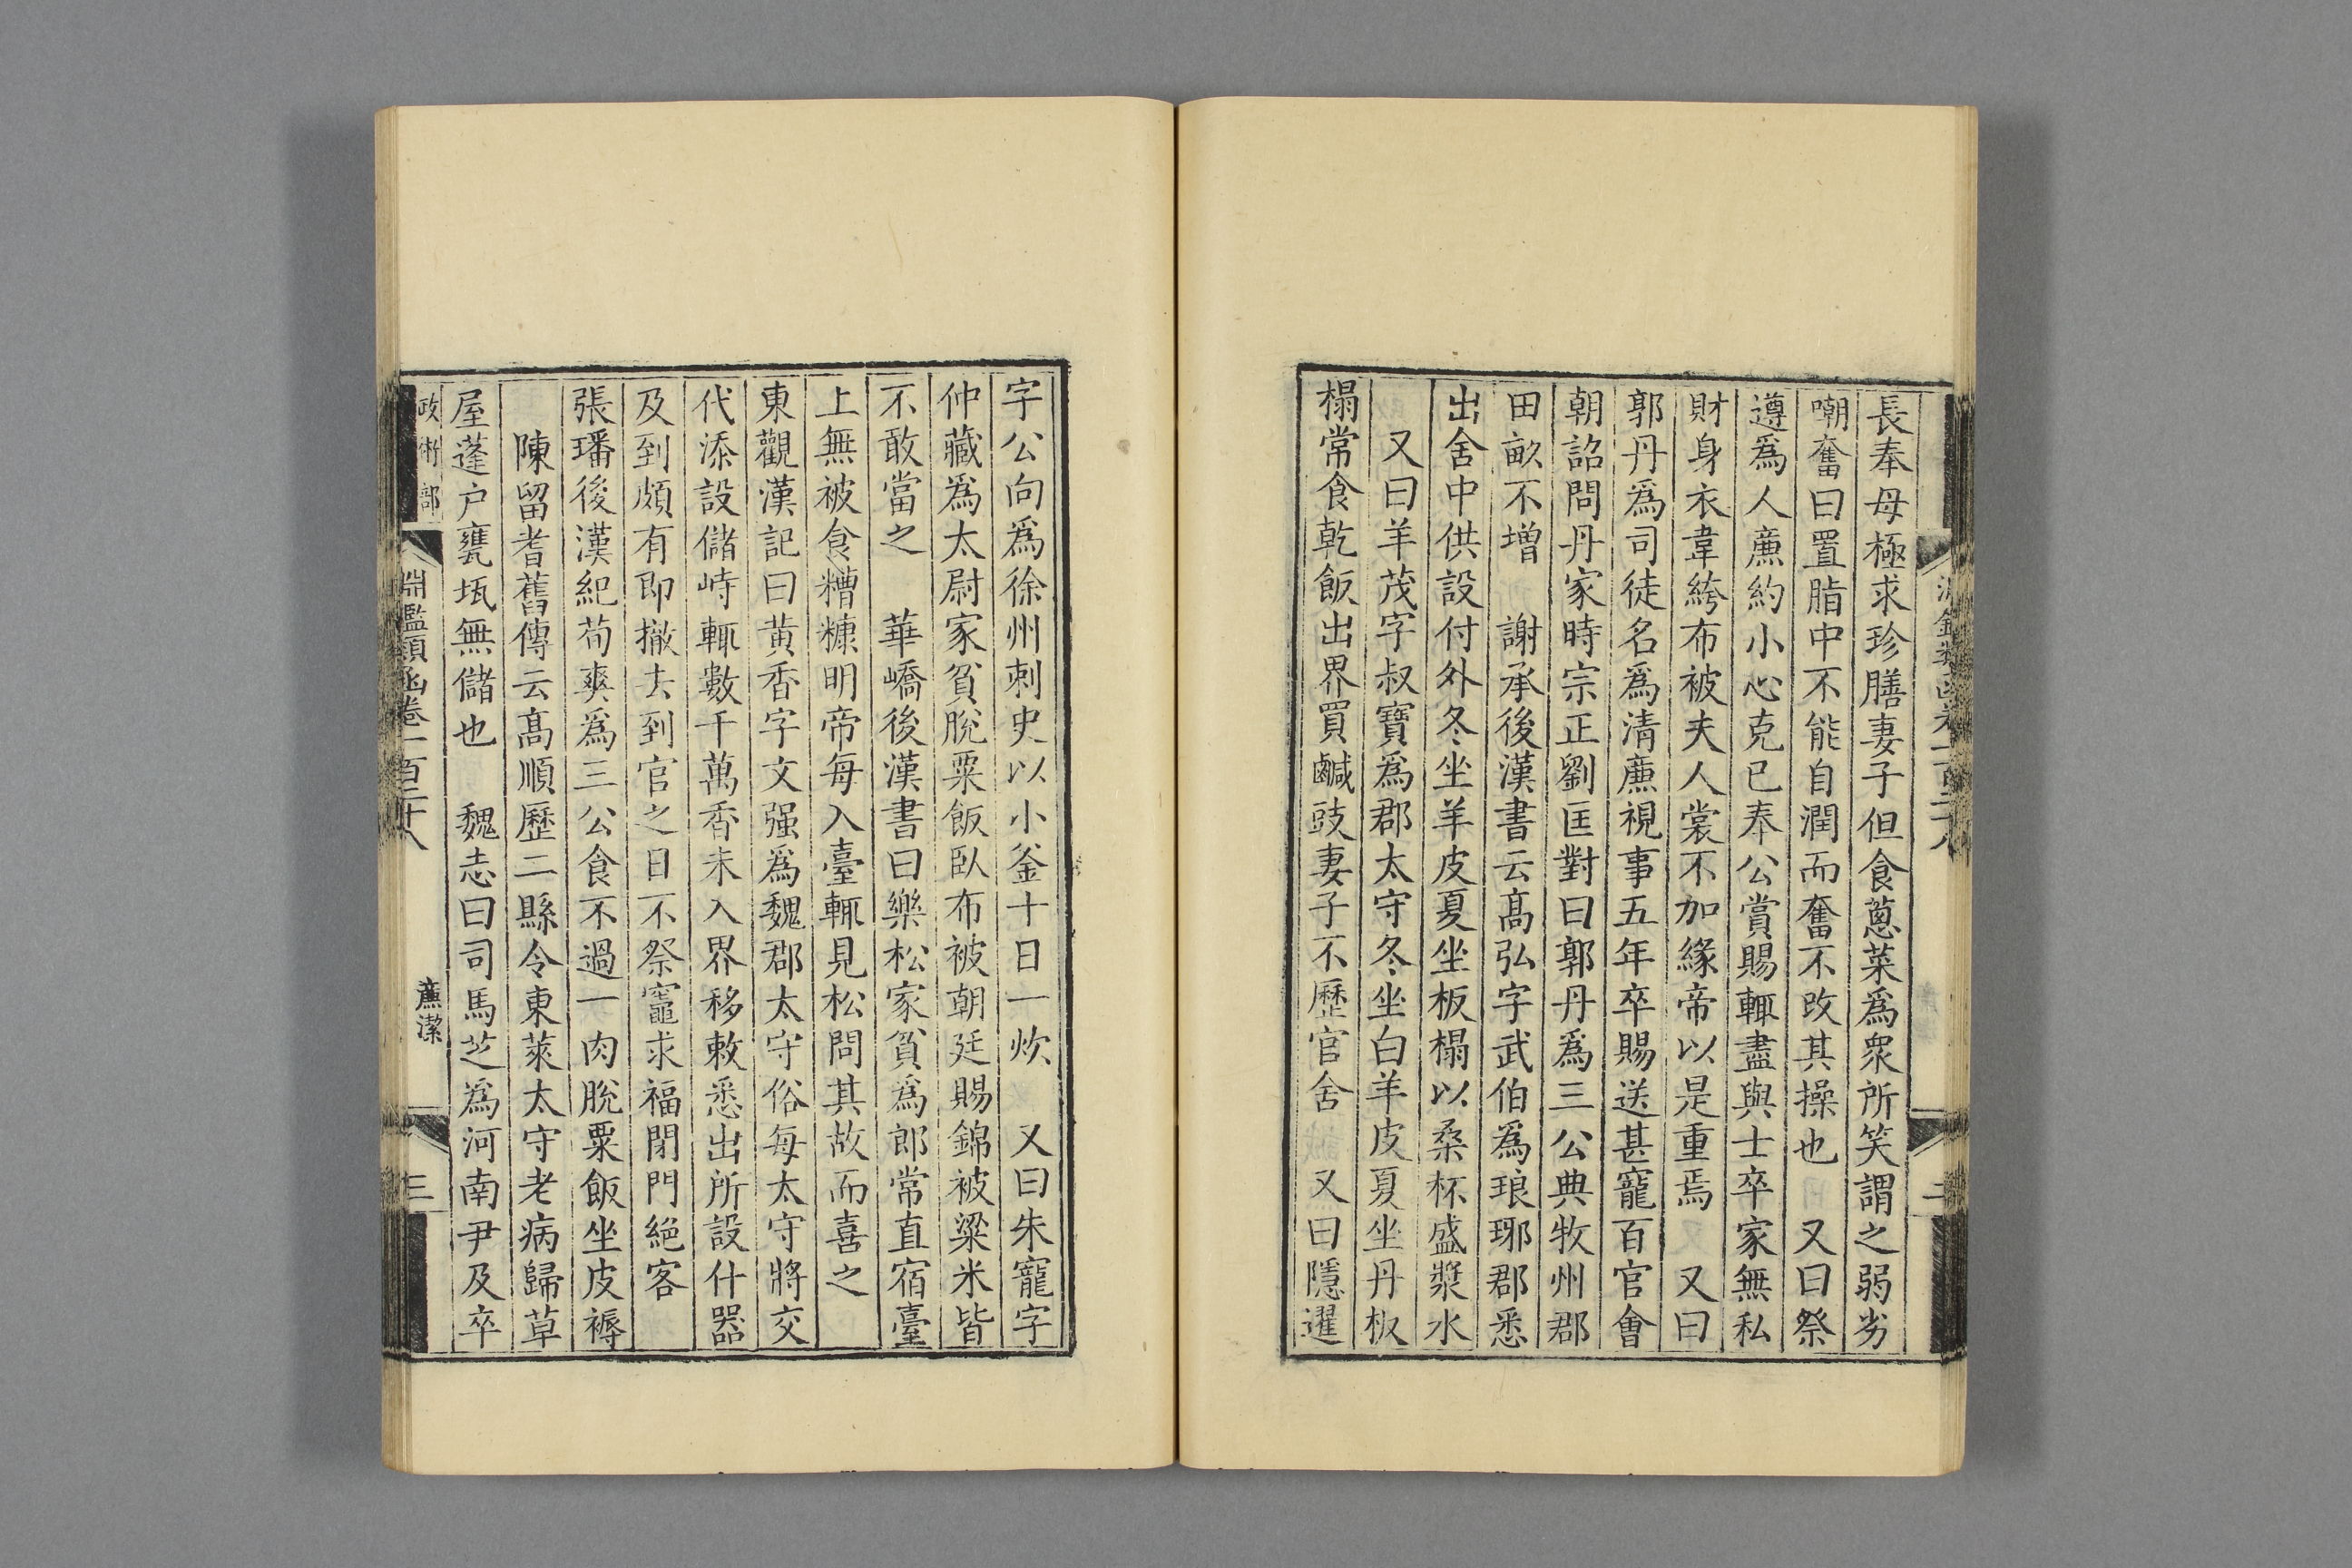 長奉母極求珍膳妻子但食蔥菜爲衆所笑謂之弱劣
嘲奮曰置脂中不能自潤而奮不改其操也　又曰祭
遵爲人亷約小心克已奉公賞賜輒盡與士卒家無私
財身衣韋絝布被夫人裳不加緣帝以是重焉　又曰
郭丹爲司徒名爲清亷視事五年卒賜送甚寵百官會
朝詔問丹家時宗正劉匡對曰郭丹爲三公典牧州郡
田畝不增　謝承後漢書云高弘字武伯爲琅琊郡悉
出舍中供設付外冬坐羊皮夏坐板榻以桑杯盛漿水
又曰羊茂字叔寶爲郡太守冬坐白羊皮夏坐丹板
榻常食乾飯出界買鹹豉妻子不歷官舍　又曰隱暹
字公向爲徐州刺史以小釜十日一炊　又曰朱寵字
仲藏爲太尉家貧脫粟飯臥布被朝廷賜錦被粱米皆
不敢當之　華嶠後漢書曰樂松家貧爲郎常直宿臺
上無被食糟糠明帝每入臺輒見松問其故而喜之
東觀漢記曰黄香字文强爲魏郡太守俗每太守將交
代添設儲峙輒數千萬香未入界移敕悉出所設什器
及到頗有即撤去到官之日不祭竈求福閉門絕客
張璠後漢紀荀爽爲三公食不過一肉脫粟飯坐皮褥
陳留耆舊傳云高順歷二縣令東萊太守老病歸草
屋蓬户甕瓨無儲也　魏志曰司馬芝爲河南尹及卒
政術部　淵鑑類函卷一百二十八　亷潔　三